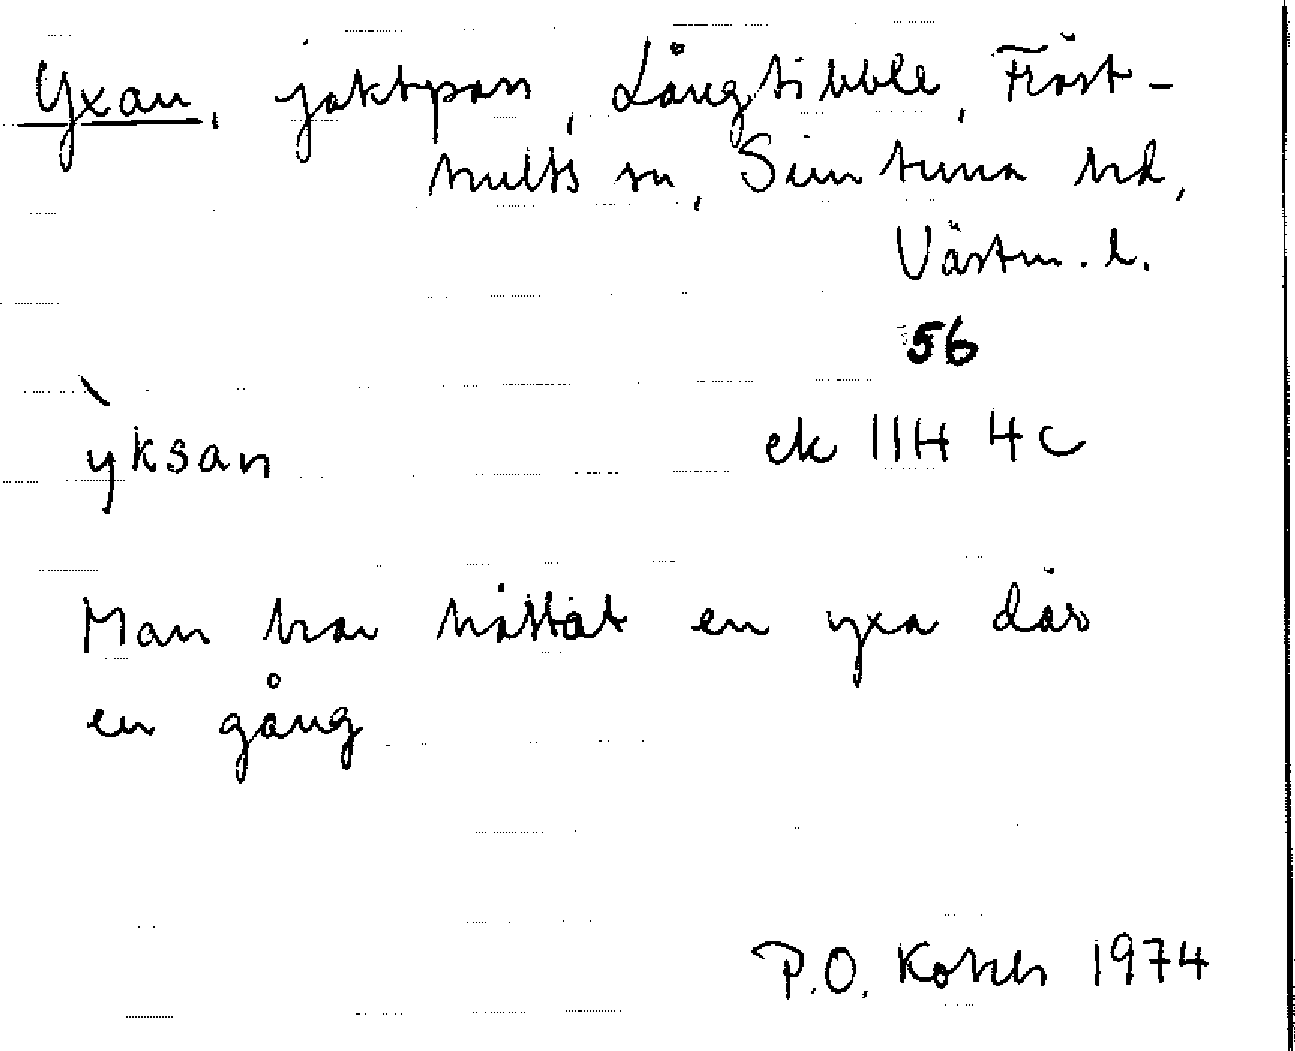 Yxan, jaktpass, Långtibble, Fröst-
hults sn, Simtuna hd,
Västm. l.
56
`yksan ek 11H 4c
Man har hittat en yxa där
en gång
P.O. 1974